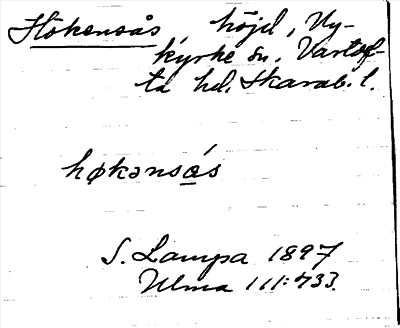 Hökensås, höjd, Ny-
kyrke sn. Vartof-
ta hd. Skarab. l.
høkənsås
S. Lampa 1897
Ulma 111:733.